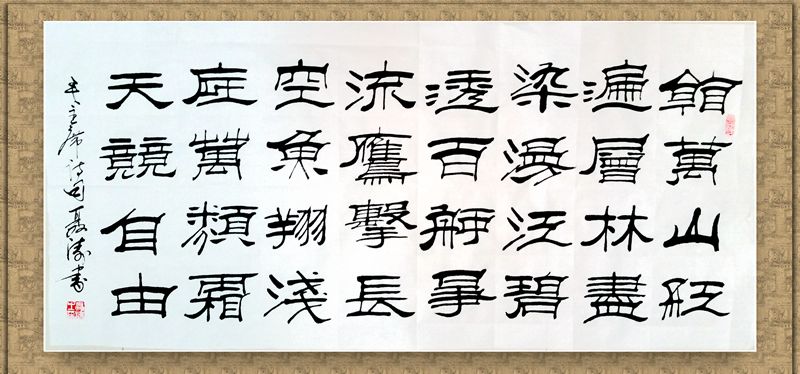 看萬山紅
遍層林盡
染漫江碧
透百舸爭
流鷹擊長
空魚翔淺
底萬類霜
天競自由
毛主席诗词聂涛書